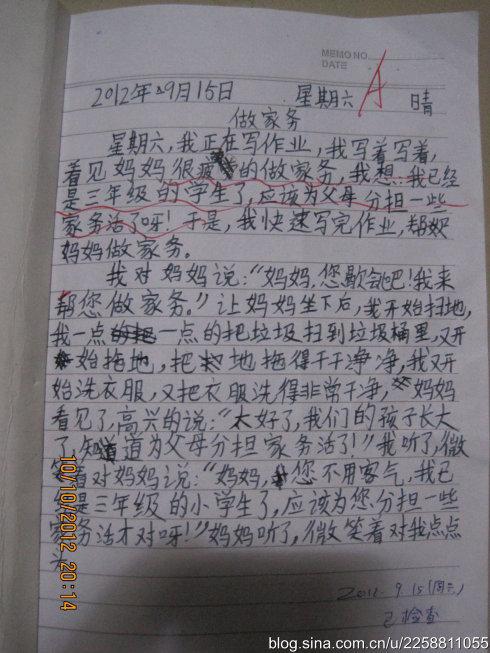 MEMO NO.
DATE
2012年9月15日 星期六 A 晴
做家务
星期六,我正在写作业,我写着写着,
看见妈妈很疲的做家务,我想:我已经
是三年级的学生了,应该为父母分担一些
家务活了呀!于是,我快速写完作业,帮
妈妈做家务。
我对妈妈说:“妈妈,您歇会吧!我来
帮您做家务。”让妈妈坐下后,我开始扫地,
我一点一点的把垃圾扫到垃圾桶里,又开
始拖地,把地拖得干干净净,我又开
始洗衣服,又把衣服洗得非常干净,妈妈
看见了,高兴的说:“太好了,我们的孩子长大
了,知道为父母分担家务活了!”我听了,微
笑着对妈妈说:“妈妈,您不用客气,我已
经是三年级的小学生了,应该为您分担一些
家务活才对呀!”妈妈听了,微笑着对我点点
头
2012.9.15(周六)
已检查
10/10/2012 20:14
blog.sina.com.cn/u/2258811055